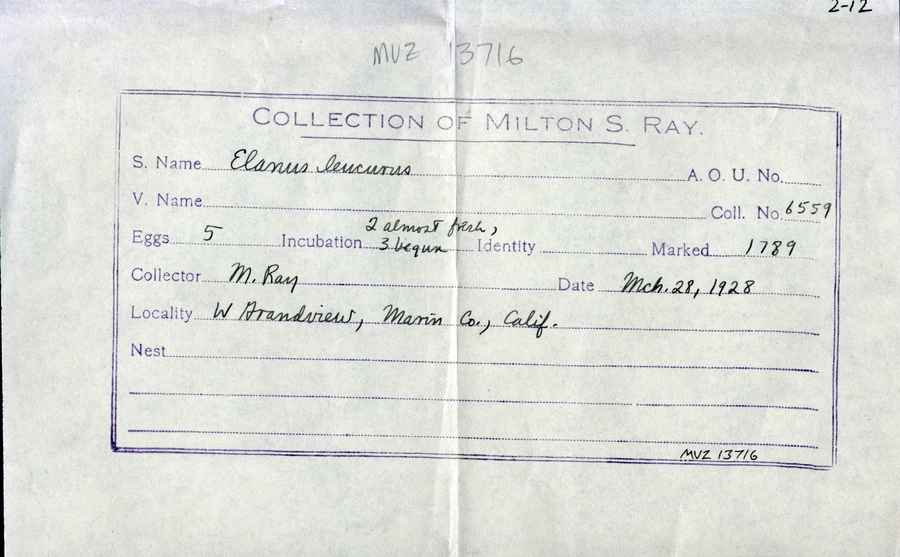 2-12
MVZ 13716
COLLECTION OF MILTON S. RAY.
S. Name Elanus leucurus A. O. U. No.
V. Name Coll. No. 6559
2 almost fresh,
Eggs 5 Incubation 3 begun Identity Marked 1789
Collector M. Ray Date Mch. 28, 1928
Locality W Grandview, Marin Co., Calif.
Nest
MVZ 13716